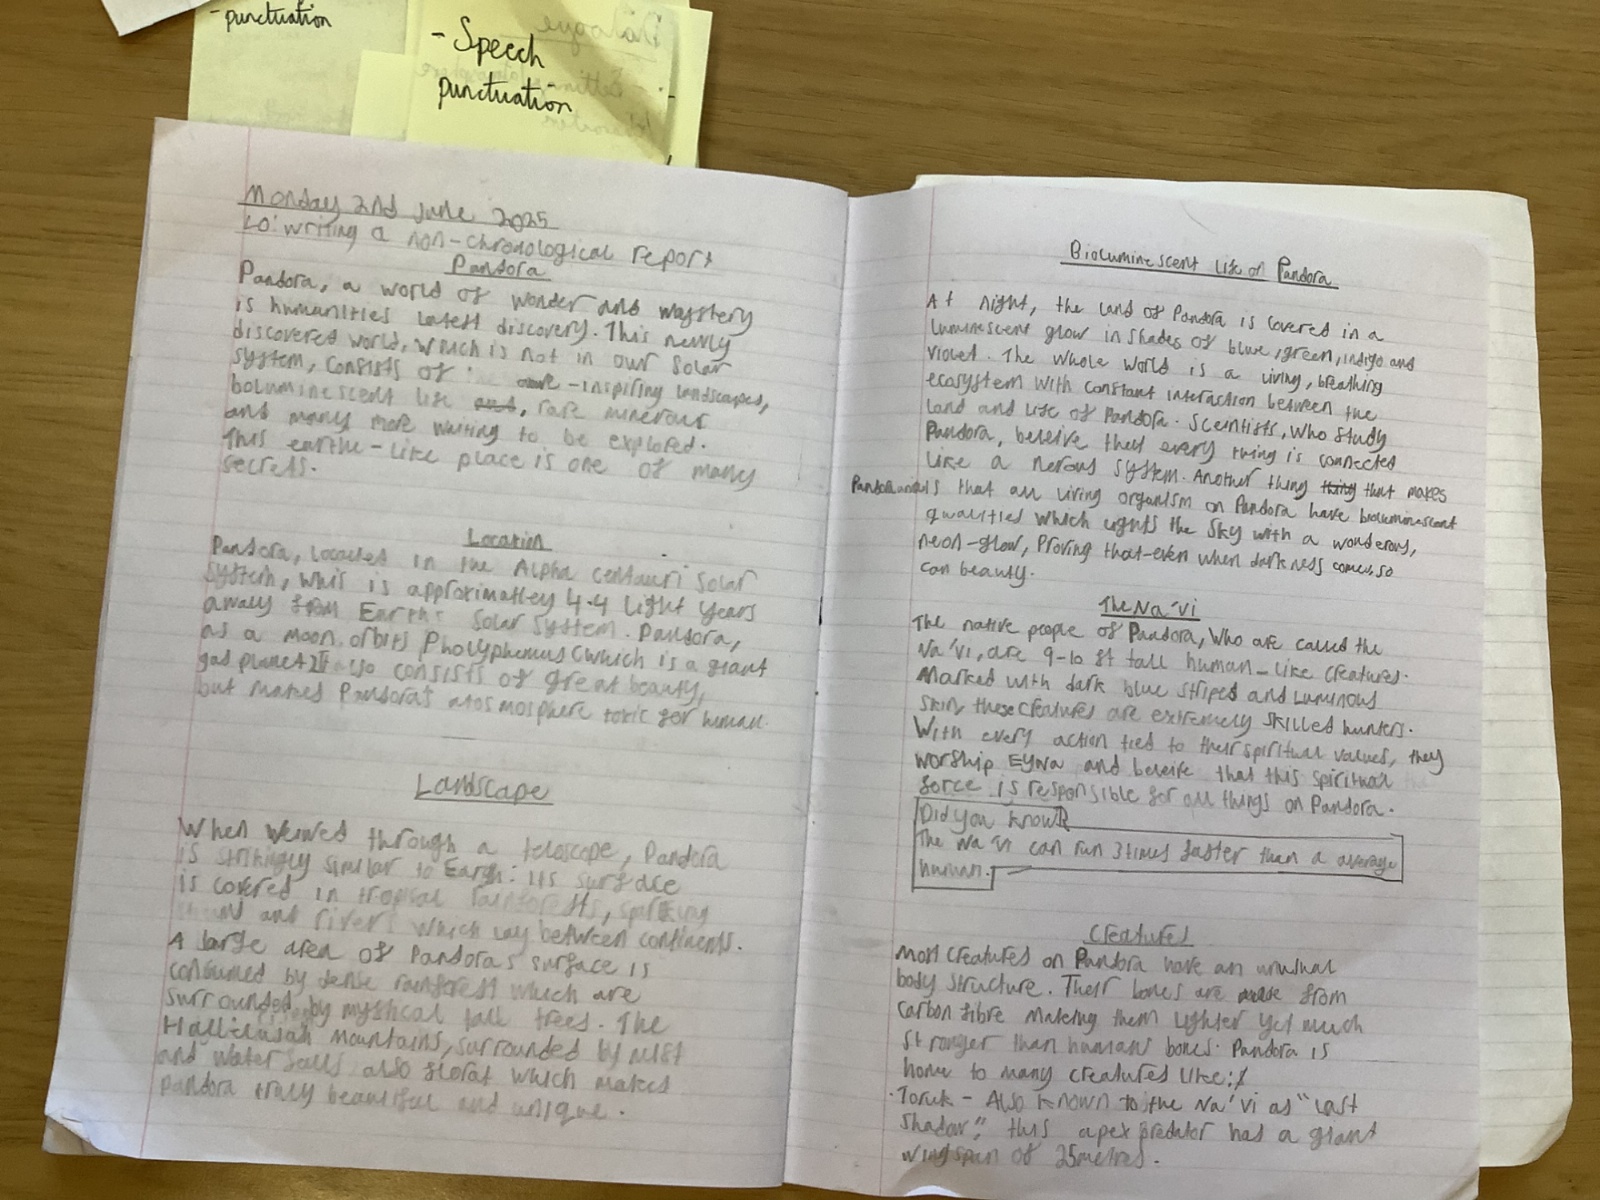 - punctuation
- Speech
punctuation
Monday 2nd June 2025
LO: writing a non-chronological report
Pandora
Pandora, a world of wonder and mystery
is humanities latest discovery. This newly
discovered world, which is not in our solar
system, consists of -inspiring landscapes,
boluminescent life and, rare minerour
and many more waiting to be explored.
This earthe-like place is one of many
secrets.
Location
Pandora, located in the Alpha centauri solar
system, whis is approximatley 4.4 light years
away from Earth's solar system. Pandora,
as a moon orbits Pholyphemus (which is a giant
gas planet) It also consists of great beauty,
but makes Pandora's atosmosphere toxic for human.
Landscape
When weiwed through a teloscope, Pandora
is strikingly similar to Earth: its surface
is covered in tropical rainforests,
and rivers which lay between continents.
A large area of Pandoras surface is
consumed by dense rainforest which are
surrounded by mystical tall trees. The
Halleluiah mountains, surrounded by mist
and waterfalls also florat which makes
pandora truly beautiful and unique.
Bioluminescent life on Pandora
At night, the land of Pandora is covered in a
luminescent glow in shades of blue, green, indigo and
violet. The whole world is a living, breathing
ecosystem with constant interaction between the
land and life of Pandora. Sceintists, who study
Pandora, beleive that every thing is connected
like a nerous system. Another thing thing that makes
Pandora is that all living organism on Pandora have bioluminescent
qualities which lights the sky with a wonderous,
neon-glow, proving that-even when darkness comes, so
can beauty.
The Na'vi
The native people of Pandora, who are called the
Na'vi, are 9-10 ft tall human-like creatures.
Marked with dark blue stripes and luminous
skin, these creatures are extremely skilled hunters.
With every action tied to their spiritual values, they
worship Eywa and beleive that this spiritual
force is responsible for all things on Pandora.
Did you know?
The Na'vi can run 3 times faster than a average
human.
Creatures
Most creatures on Pandora have an unusual
body structure. Their bones are made from
carbon fibre making them lighter yet much
stronger than humans bones. Pandora is
home to many creatures like:
• Toruk - Also known to the Na'vi as "last
shadow," this apex predator has a giant
wingspan of 25metres.